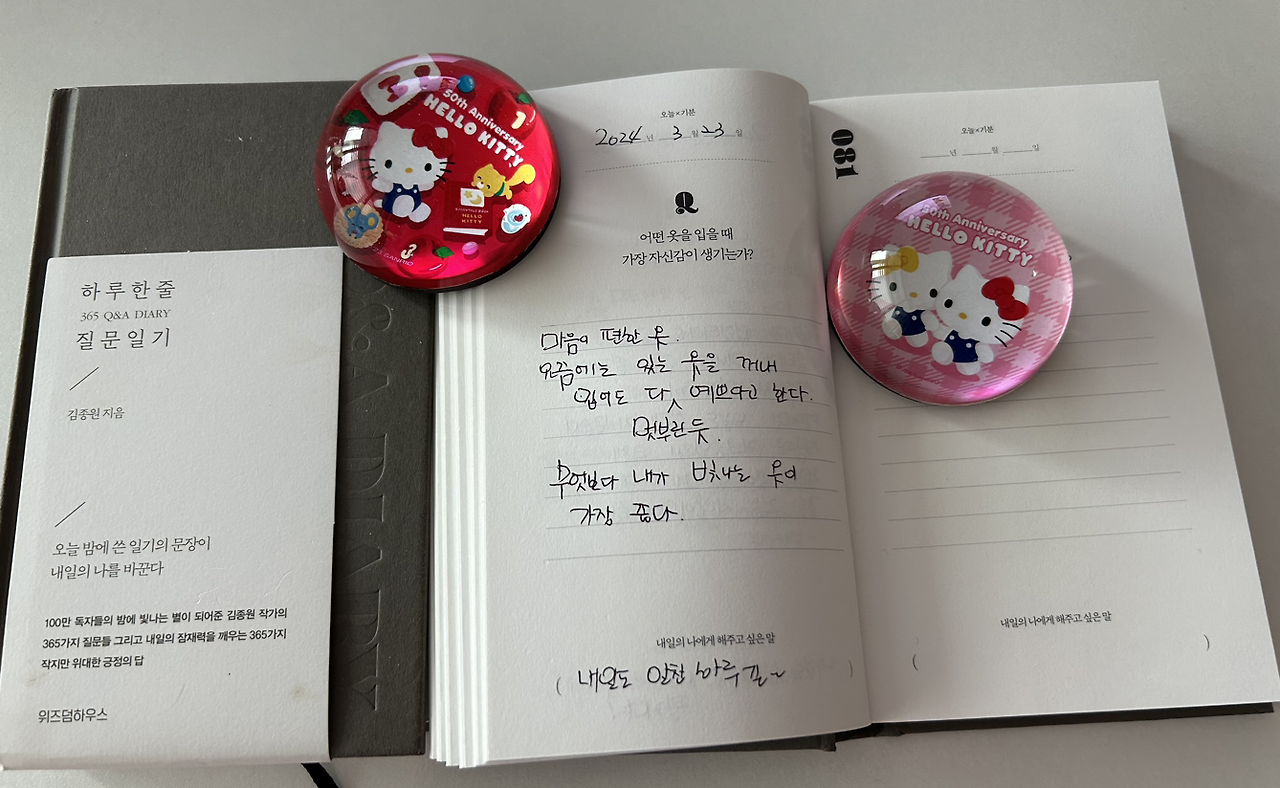 하루한줄
365 Q&A DIARY
질문일기
김종원 지음
오늘 밤에 쓴 일기의 문장이
내일의 나를 바꾼다
100만 독자들의 밤에 빛나는 별이 되어준 김종원 작가의
365가지 질문들 그리고 내일의 잠재력을 깨우는 365가지
작지만 위대한 긍정의 답
위즈덤하우스
&A DIARY
50th Anniversary
HELLO KITTY
HELLO
KITTY
SANRIO
오늘×기분
2024년 3월 23일
Q
어떤 옷을 입을 때
가장 자신감이 생기는가?
마음이 편한 옷.
요즘에는 있는 옷을 꺼내
입어도 다 예쁘다고 한다.
멋부린 듯.
무엇보다 내가 빛나는 옷이
가장 좋다.
내일의 나에게 해주고 싶은 말
( 내일도 알찬 하루 길~ )
081
오늘×기분
년 월 일
50th Anniversary
HELLO KITTY
내일의 나에게 해주고 싶은 말
( )